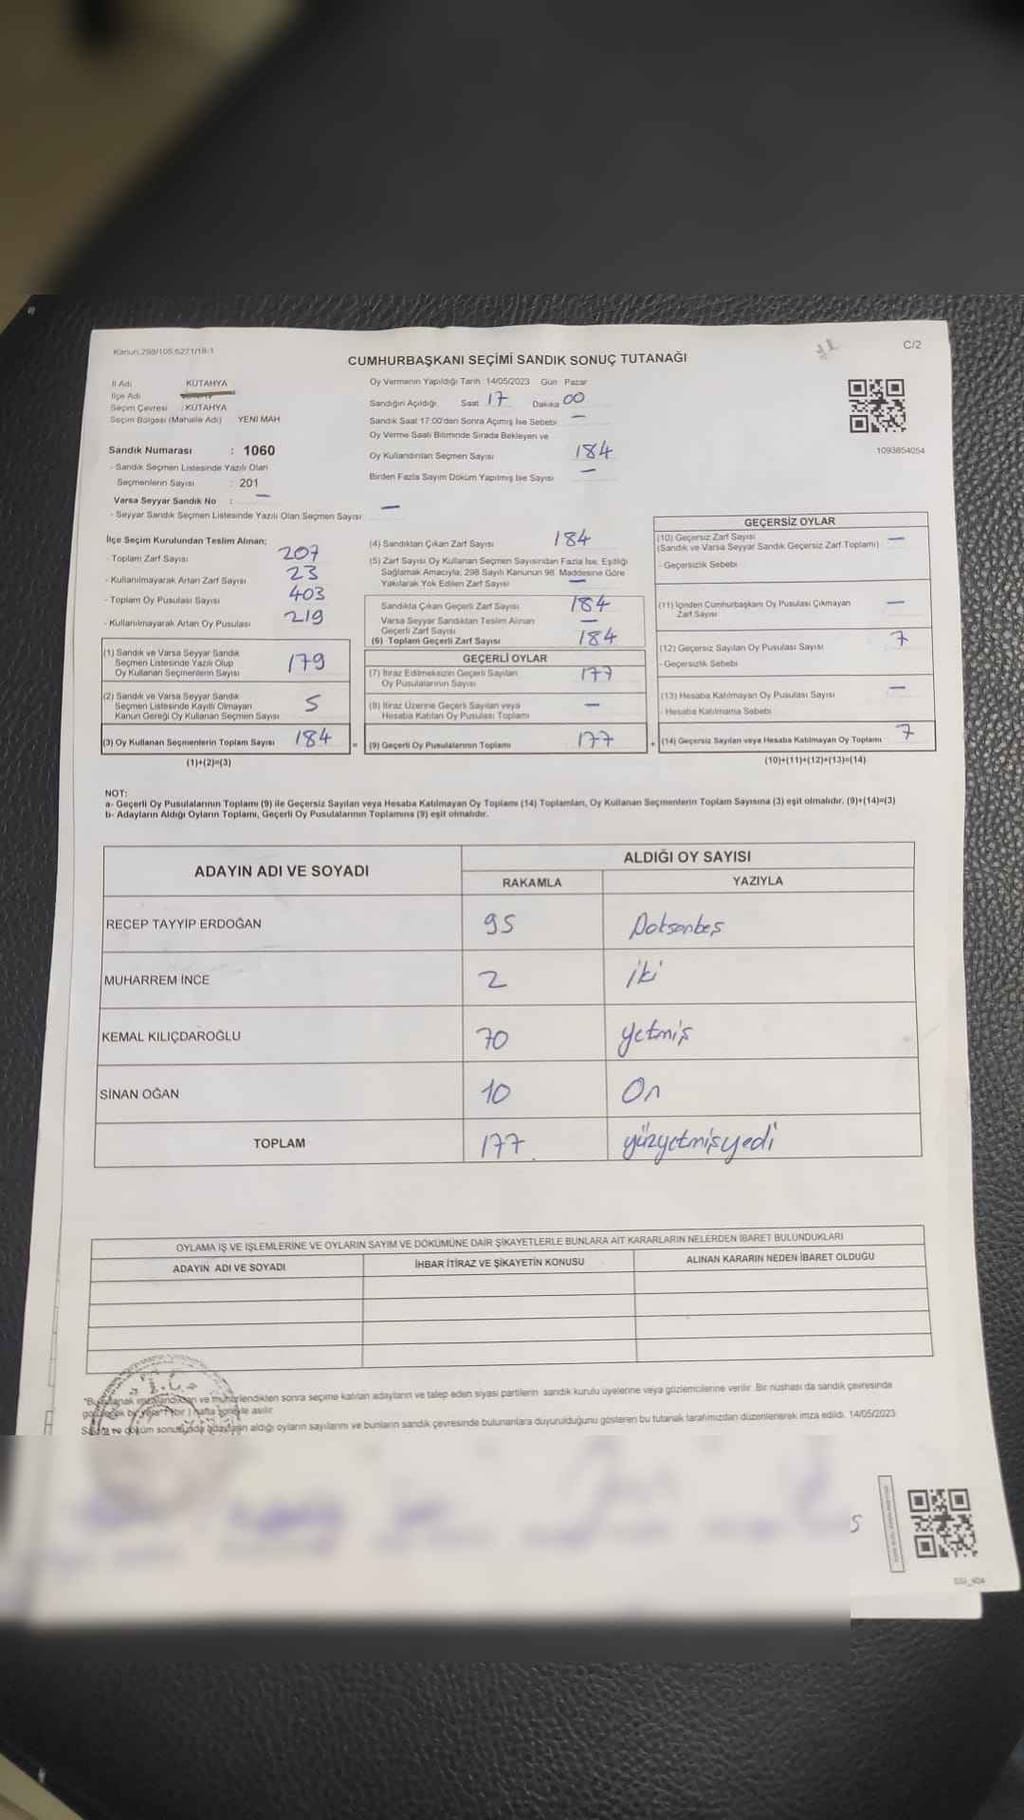 Kanun:298/105,6271/18-1
C/2
CUMHURBAŞKANI SEÇİMİ SANDIK SONUÇ TUTANAĞI
İl Adı KÜTAHYA
İlçe Adı
Seçim Çevresi :KÜTAHYA
Seçim Bölgesi (Mahalle Adı) YENİ MAH
Sandık Numarası : 1060
- Sandık Seçmen Listesinde Yazılı Olan
Seçmenlerin Sayısı : 201
Varsa Seyyar Sandık No : —
- Seyyar Sandık Seçmen Listesinde Yazılı Olan Seçmen Sayısı: —
Oy Vermenin Yapıldığı Tarih 14/05/2023 Gün Pazar
Sandığın Açıldığı Saat 17 Dakika 00
Sandık Saat 17:00'dan Sonra Açımış İse Sebebi —
Oy Verme Saati Bitiminde Sırada Bekleyen ve
Oy Kullandırılan Seçmen Sayısı 184
Birden Fazla Sayım Döküm Yapılmış İse Sayısı —
1093854054
İlçe Seçim Kurulundan Teslim Alınan;
- Toplam Zarf Sayısı 207
- Kullanılmayarak Artan Zarf Sayısı 23
- Toplam Oy Pusulası Sayısı 403
- Kullanılmayarak Artan Oy Pusulası 219
(1) Sandık ve Varsa Seyyar Sandık
Seçmen Listesinde Yazılı Olup
Oy Kullanan Seçmenlerin Sayısı 179
(2) Sandık ve Varsa Seyyar Sandık
Seçmen Listesinde Kayıtlı Olmayan
Kanun Gereği Oy Kullanan Seçmen Sayısı 5
(3) Oy Kullanan Seçmenlerin Toplam Sayısı 184
(1)+(2)=(3)
(4) Sandıktan Çıkan Zarf Sayısı 184
(5) Zarf Sayısı Oy Kullanan Seçmen Sayısından Fazla İse, Eşitliği
Sağlamak Amacıyla, 298 Sayılı Kanunun 98. Maddesine Göre
Yakılarak Yok Edilen Zarf Sayısı —
Sandıkta Çıkan Geçerli Zarf Sayısı 184
Varsa Seyyar Sandıktan Teslim Alınan
Geçerli Zarf Sayısı —
(6) Toplam Geçerli Zarf Sayısı 184
GEÇERLİ OYLAR
(7) İtiraz Edilmeksizin Geçerli Sayılan
Oy Pusulalarının Sayısı 177
(8) İtiraz Üzerine Geçerli Sayılan veya
Hesaba Katılan Oy Pusulası Toplamı —
= (9) Geçerli Oy Pusulalarının Toplamı 177
GEÇERSİZ OYLAR
(10) Geçersiz Zarf Sayısı —
(Sandık ve Varsa Seyyar Sandık Geçersiz Zarf Toplamı)
- Geçersizlik Sebebi
(11) İçinden Cumhurbaşkanı Oy Pusulası Çıkmayan
Zarf Sayısı —
(12) Geçersiz Sayılan Oy Pusulası Sayısı 7
- Geçersizlik Sebebi
(13) Hesaba Katılmayan Oy Pusulası Sayısı —
- Hesaba Katılmama Sebebi
+ (14) Geçersiz Sayılan veya Hesaba Katılmayan Oy Toplamı 7
(10)+(11)+(12)+(13)=(14)
NOT:
a- Geçerli Oy Pusulalarının Toplamı (9) ile Geçersiz Sayılan veya Hesaba Katılmayan Oy Toplamı (14) Toplamları, Oy Kullanan Seçmenlerin Toplam Sayısına (3) eşit olmalıdır. (9)+(14)=(3)
b- Adayların Aldığı Oyların Toplamı, Geçerli Oy Pusulalarının Toplamına (9) eşit olmalıdır.
ADAYIN ADI VE SOYADI
ALDIĞI OY SAYISI
RAKAMLA YAZIYLA
RECEP TAYYİP ERDOĞAN 95 Doksanbeş
MUHARREM İNCE 2 iki
KEMAL KILIÇDAROĞLU 70 yetmiş
SİNAN OĞAN 10 On
TOPLAM 177 yüzyetmişyedi
OYLAMA İŞ VE İŞLEMLERİNE VE OYLARIN SAYIM VE DÖKÜMÜNE DAİR ŞİKAYETLERLE BUNLARA AİT KARARLARIN NELERDEN İBARET BULUNDUKLARI
ADAYIN ADI VE SOYADI İHBAR İTİRAZ VE ŞİKAYETİN KONUSU ALINAN KARARIN NEDEN İBARET OLDUĞU
T.C.
ve mühürlendikten sonra seçime katılan adayların ve talep eden siyasi partilerin sandık kurulu üyelerine veya gözlemcilerine verilir. Bir nüshası da sandık çevresinde
hafta süreyle asılır
aldığı oyların sayılarını ve bunların sandık çevresinde bulunanlara duyurulduğunu gösteren bu tutanak tarafımızdan düzenlenerek imza edildi. 14/05/2023